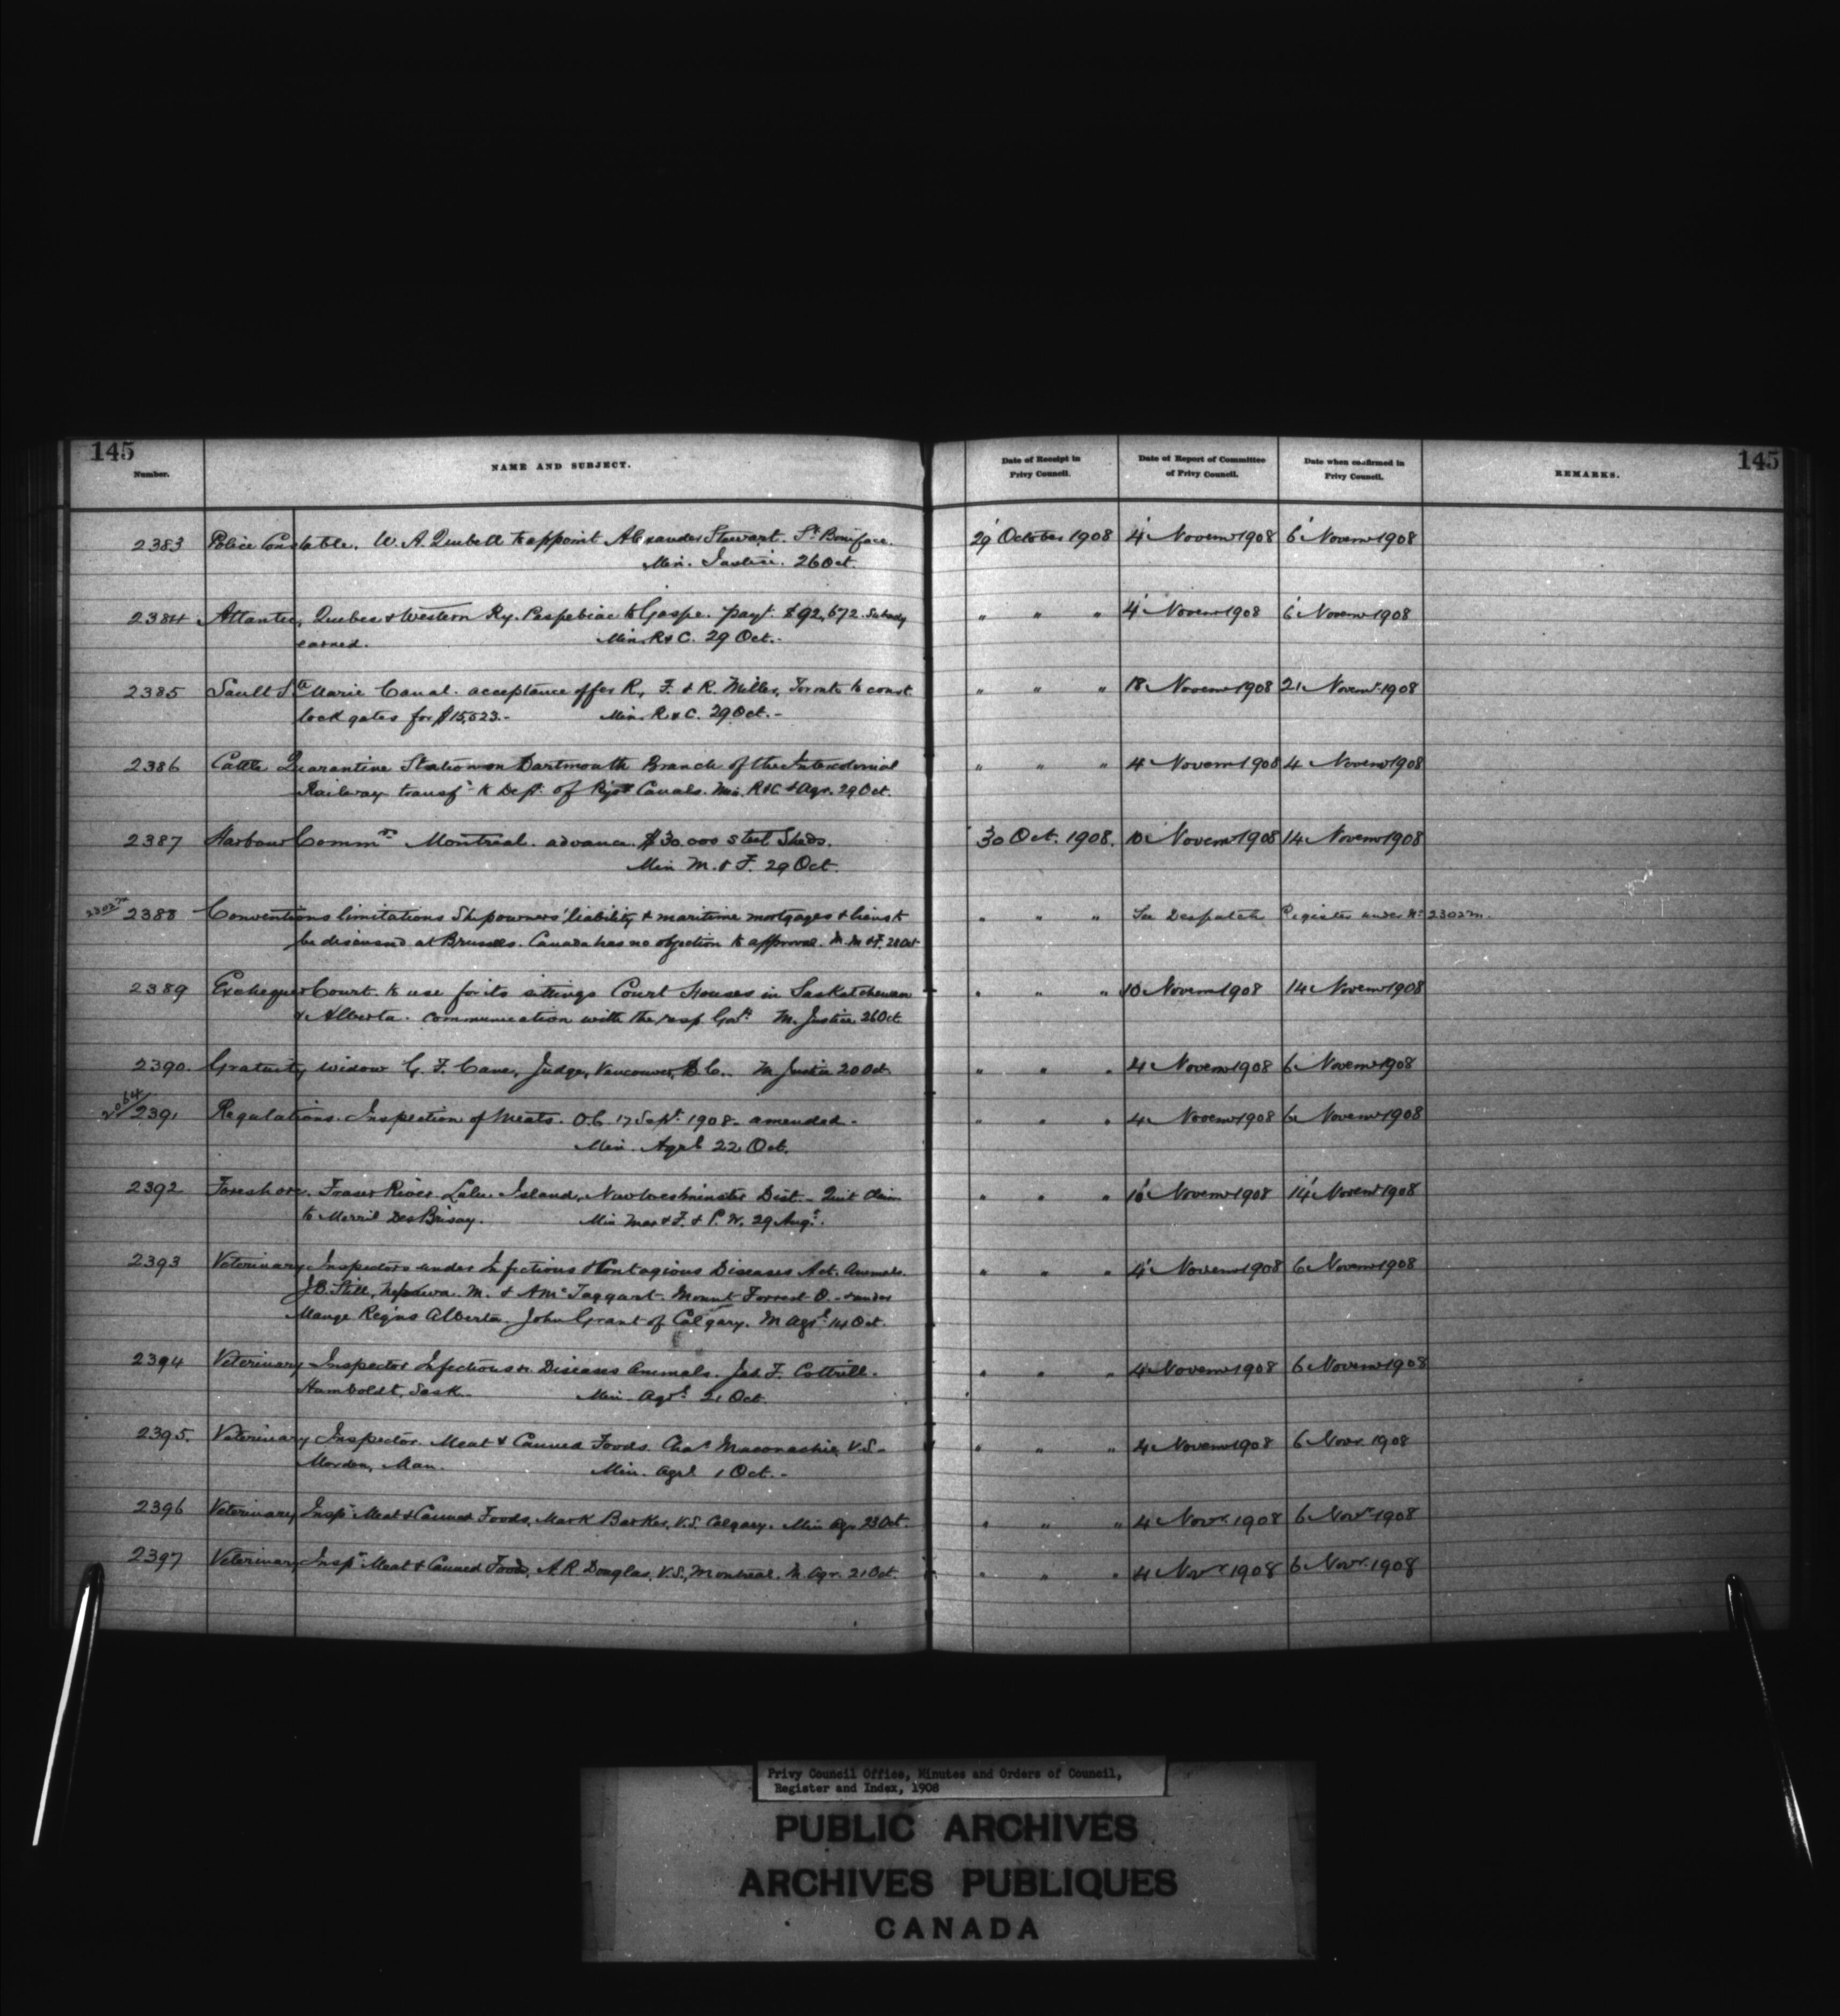 145
Number. NAME AND SUBJECT. Date of Receipt in Privy Council. Date of Report of Committee of Privy Council. Date when confirmed in Privy Council. REMARKS. 145
2383 Police Constable. W. A. to appoint Alexander Stewart. St Boniface. 29 October 1908 4 Novemr 1908 6 Novemr 1908
Min. Justice. 26 Oct.
2384 Atlantic, Quebec & Western Ry. Paspebiac to Gaspe. payt. $92,672. Subsidy " " " 4 Novemr 1908 6 Novemr 1908
earned. Min. R & C. 29 Oct.
2385 Sault Ste Marie Canal. acceptance offer R, F. & R. Miller, Toronto to const " " " 18 Novemr 1908 21 Novemr 1908
lock gates for $15,523.- Min. R. & C. 29 Oct.-
2386 Cattle Quarantine Station on Dartmouth Branch of the Intercolonial " " " 4 Novemr 1908 4 Novemr 1908
Railway transfr to Dept. of Rys & Canals. Min. R & C & Agr. 29 Oct.
2387 Harbour Commrs Montreal. advance. $30.000 steel Sheds. 30 Oct. 1908. 10 Novemr 1908 14 Novemr 1908
Min M. & F. 29 Oct.
2302m 2388 Conventions limitations Shipowners' liability & maritime mortgages & liens to " " " See Despatch Register under No 2302m.
be discussed at Brussels. Canada has no objection to approval. M. M & F. 28 Oct
2389 Exchequer Court. to use for its sittings Court Houses in Saskatchewan " " " 10 Novemr 1908 14 Novemr 1908
& Alberta. communication with the resp Govts M. Justice 26 Oct
2390. Gratuity widow G. F. Cane, Judge, Vancouver, B.C. M Justice 20 Oct. " " " 4 Novemr 1908 6 Novemr 1908
2064/2391 Regulations. Inspection of Meats. O.C. 17 Sept. 1908. amended. " " " 4 Novemr 1908 6 Novemr 1908
Min. Agrl 22 Oct.
2392 Foreshore. Fraser River Lulu Island, New Westminster Dist. Quit Claim " " " 10 Novemr 1908 14 Novemr 1908
to Merril DesBrisay. Min Mar & F. & P. W. 29 Augt.
2393 Veterinary Inspectors under Infectious & Contagious Diseases Act. Animals. " " " 4 Novemr 1908 6 Novemr 1908
J B Still, Neepawa. M. & A Mc Taggart. Mount Forrest O. & under
Mange Regns Alberta. John Grant of Calgary. M Agrl. 14 Oct.
2394 Veterinary Inspector Infectious &c. Diseases Animals. Jas. F. Cottrill. " " " 4 Novemr 1908 6 Novemr 1908
Humboldt, Sask. Min. Agrl. 21 Oct.
2395. Veterinary Inspector. Meat & Canned Foods. Chas Maconachie, V.S. " " " 4 Novemr 1908 6 Novr. 1908
Morden, Man. Min. Agrl. 1 Oct.-
2396 Veterinary Inspr Meat & Canned Foods, Mark Barker, V.S. Calgary. Min Agr 23 Oct. " " " 4 Novr. 1908 6 Novr 1908
2397 Veterinary Inspr Meat & Canned Foods, A R Douglas, V.S., Montreal. M. Agr. 21 Oct. " " " 4 Novr 1908 6 Novr. 1908
Privy Council Office, Minutes and Orders of Council,
Register and Index, 1908
PUBLIC ARCHIVES
ARCHIVES PUBLIQUES
CANADA